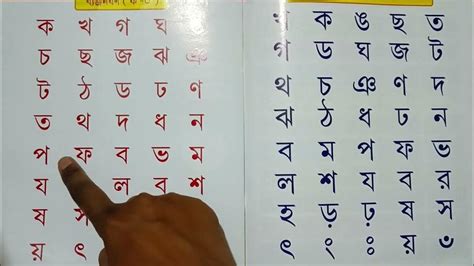 ক খ গ ঘ
চ ছ জ ঝ ঞ
ট ঠ ড ঢ ণ
ত থ দ ধ ন
প ফ ব ভ ম
য ল ব শ
ষ স
য় ৎ
খ ক ঙ ছ ত
গ ড ঘ জ ট
থ চ ঞ ণ দ
ঝ ঠ ধ ঢ ন
ব ম প ফ ভ
ল শ ষ য র
হ ড় ঢ় স
ৎ ং ঃ য় ঁ